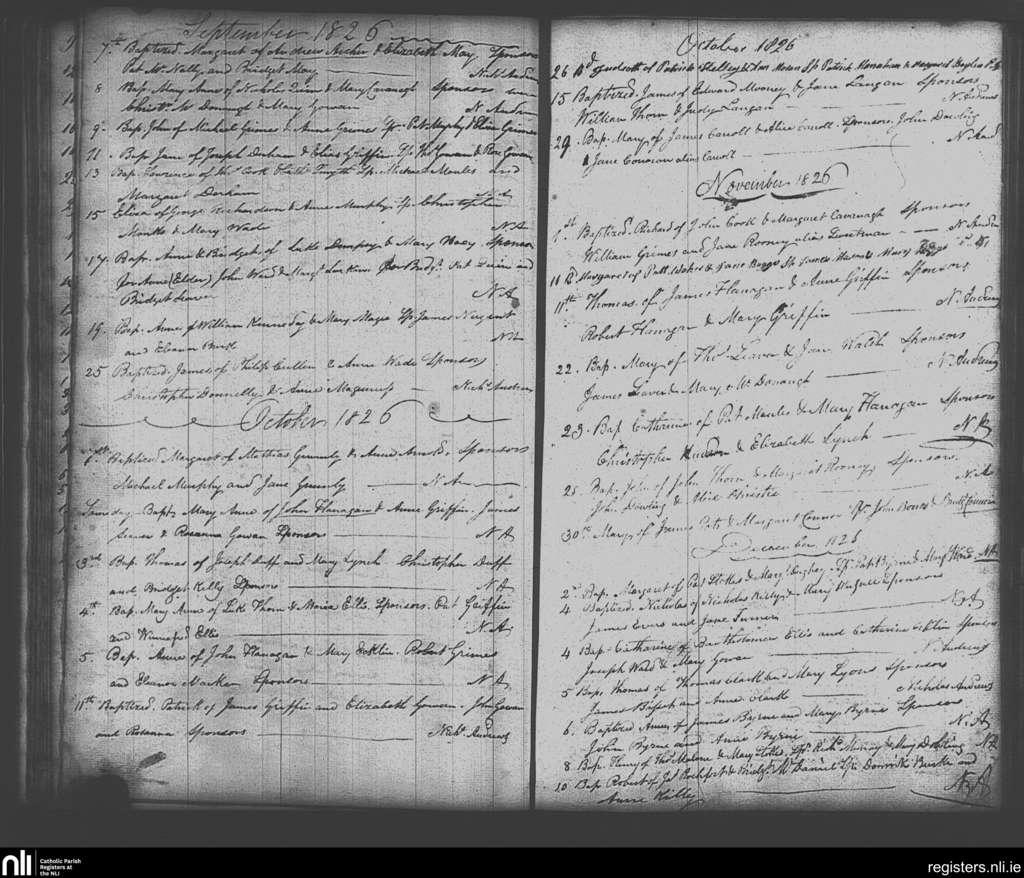 September 1826
7th Baptized Margaret of Andrew Archer & Elizabeth May Sponsors
Pat McNally and Bridget May
8 Bap. Mary Anne of Nicholas Quinn & Mary Cavanagh Sponsors
Christr. McDonough & Mary Gowan N. Andrews
9. Bap. John of Michael Grimes & Anne Grimes Sp. Pat Murphy & Grimes
11. Bap. Jane of Joseph Durham & Griffin Sp. Gowan & Rose Gowan
13 Bap. Lawrence of Thos. Cook Sp. Michael Maules and
Margaret Durham
15 Eliza of George Richardson & Anne Murphy Sp. Christopher
Monks & Mary Wade N.A
17. Bap. Anne & Bridget of Luke Dempsey & Mary Sponsors
for Anne (Elder) John Ward & for Bridgt. Pat Quinn and
Bridget N.A
19. Bap. Anne of William Kennedy & Mary Magee Sp. James Nugent
and Eleanor N.A
25 Baptized James of Philip Cullen & Anne Wade Sponsors
Christopher Donnelly & Anne Nichs. Andrews
October 1826
1st Baptized Margaret of Mathias Gunnely & Anne Sponsors
Michael Murphy and Jane Gunnly N.A
Same day Bapt. Mary Anne of John Flanagan & Anne Griffin. James
and Rosanna Gowan Sponsors N A
3rd Bap. Thomas of Joseph Duff and Mary Lynch Christopher Duff
and Bridget Kelly Sponsors N A
4th Bap. Mary Anne of Luke Thorn & Maria Ellis. Sponsors. Pat Griffin
and Winnefred Ellis N.A
5. Bap. Anne of John Flanagan & Mary Echlin. Robert Grimes
and Eleanor Macken Sponsors N A
11th Baptized. Patrick of James Griffin and Elizabeth Gowan. John Gowan
and Rosanna Sponsors Nichs. Andrews
October 1826
26 Bd. of Patrick Skelly & Ann Sp. Patrick Monahan &
15 Baptized James of Edward Mooney & Jane Langan Sponsors
William Thorn & Judy Langan N. Andrews
29. Bap. Mary of James Carroll & Alice Carroll. Sponsors. John Dowling
& Jane alias Carroll N. And
November 1826
1st Baptized. Richard of John Cook & Margaret Cavanagh Sponsors
William Grimes and Jane Rooney alias N. Andrews
11 Bd. Margaret of Patt. & Jane Sp. James & Mary
11th Thomas of James Flanagan & Anne Griffin Sponsors
Robert Flanagan & Mary Griffin N. Andrews
22. Bap. Mary of Thos. Leaver & Jane Walsh Sponsors
James Leaver & Mary McDonough N. Andrews
23. Bap Catharine of Pat Maules & Mary Flanagan Sponsors
Christopher & Elizabeth Lynch N. A
25 Bap. John of John Thorn & Margaret Rooney Sponsors.
John Dowling & Alice Christie N. A
30th Mary of James & Margaret Connor Sp. John & Bridt. Connor
December 1826
2nd Bap. Margaret of Pat Stokes & Margt. Sp. Patk. Byrne & Margt. Ward N.A
4 Baptized. Nicholas of Nicholas Reilly & Mary Sponsors
James Evans and Jane N.A
4 Bap. Catharine of Bartholomew Ellis and Catharine Echlin Sponsors
Joseph Ward & Mary Gowan N. Andrews
5 Bap. Thomas of Thomas Clark and Mary Lyons Sponsors
James and Anne Clark Nicholas Andrews
6. Baptized Anne of James Byrne and Mary Byrne Sponsors
John Byrne and Anne Byrne N. A
8 Bap. Henry of Thos. Malone & Mary Stokes Sp. Richd. Murray & Mary Dowling N.A
10 Bap. Robert of Jas. Rochfort & Bridgt. McDaniel Sp. Dominick Burke and
Anne Kelly N. A
nli
Catholic Parish
Registers at
the NLI
registers.nli.ie